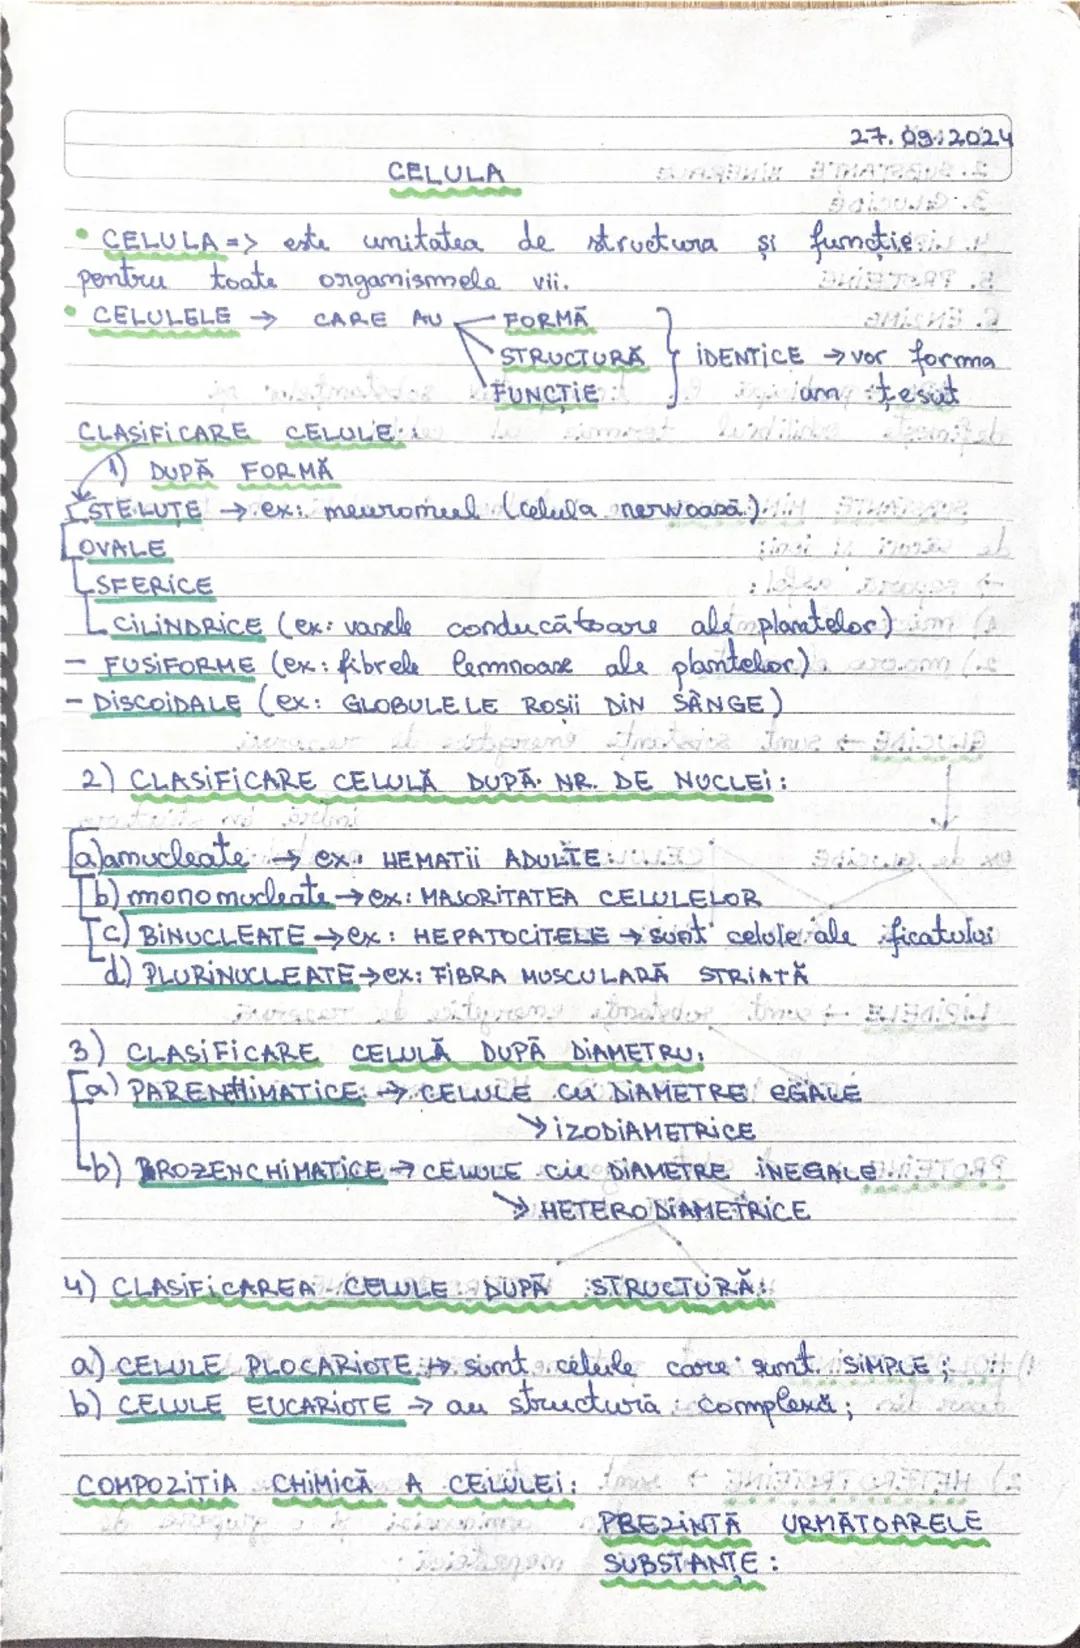 27.09.2024
CELULA
• CELULA => este unitatea de structura și funcție
pentru toate organismele vii.
• CELULELE → CARE AU FORMĂ
STRUCTURĂ } IDENTICE → vor forma
FUNCȚIE un țesut
CLASIFICARE CELULE:
1) DUPĂ FORMĂ
STELUTE → ex: neuronul (celula nervoasă)
OVALE
SFERICE
CILINDRICE (ex: vasele conducătoare ale plantelor)
- FUSIFORME (ex: fibrele lemnoase ale plantelor)
- DISCOIDALE (ex: GLOBULELE ROSII DIN SÂNGE)
2) CLASIFICARE CELULĂ DUPĂ NR. DE NUCLEI:
a) anucleate → ex: HEMATII ADULTE
b) mononucleate → ex: MAJORITATEA CELULELOR
c) BINUCLEATE → ex: HEPATOCITELE → sunt celule ale ficatului
d) PLURINUCLEATE → ex: FIBRA MUSCULARĂ STRIATĂ
3) CLASIFICARE CELULĂ DUPĂ DIAMETRU:
a) PARENHIMATICE → CELULE cu DIAMETRE EGALE
→ IZODIAMETRICE
b) PROZENCHIMATICE → CELULE cu DIAMETRE INEGALE
→ HETERODIAMETRICE
4) CLASIFICAREA CELULE DUPĂ STRUCTURĂ:
a) CELULE PLOCARIOTE → sunt celule care sunt SIMPLE;
b) CELULE EUCARIOTE → au structură complexă;
COMPOZIȚIA CHIMICĂ A CELULEI:
PREZINTĂ URMĂTOARELE
SUBSTANȚE: